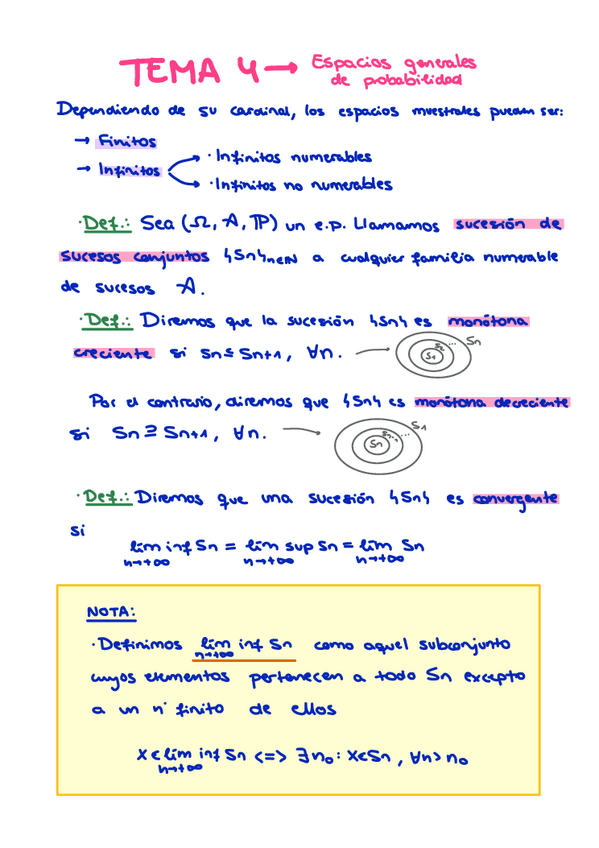 TEMA 4 → Espacios generales
de probabilidad
Dependiendo de su cardinal, los espacios muestrales pueden ser:
→ Finitos
→ Infinitos
· Infinitos numerables
· Infinitos no numerables
· Def.: Sea (Ω, A, P) un e.p. Llamamos sucesión de
sucesos conjuntos {Sn}n∈ℕ a cualquier familia numerable
de sucesos A.
· Def.: Diremos que la sucesión {Sn} es monótona
creciente si Sn ⊆ Sn+1, ∀n. →
S1 S2 ... Sn
Por el contrario, diremos que {Sn} es monótona decreciente
si Sn ⊇ Sn+1, ∀n. →
Sn Sn-1 ... S1
· Def.: Diremos que una sucesión {Sn} es convergente
si
lim inf Sn = lim sup Sn = lim Sn
n→+∞ n→+∞ n→+∞
NOTA:
· Definimos lim inf Sn como aquel subconjunto
n→+∞
cuyos elementos pertenecen a todo Sn excepto
a un nº finito de ellos
x ∈ lim inf Sn <=> ∃ n₀ : x ∈ Sn, ∀n > n₀
n→+∞